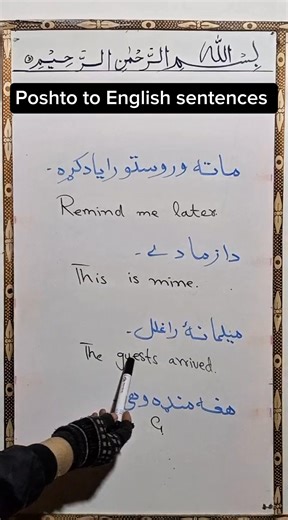 بِسْمِ اللّٰهِ الرَّحْمٰنِ الرَّحِيْمِ
Poshto to English sentences
ماته وروستو رایاد کړه۔
Remind me later
دا زما دے۔
This is mine.
میلمانۀ راغلل۔
The guests arrived.
هغه منډه وهی
G